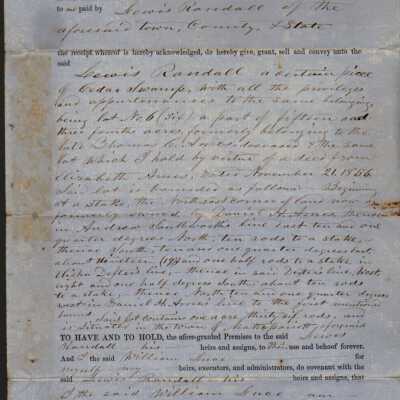 to me paid by Lewis Randall of the
aforesaid town, County, & State
the receipt whereof is hereby acknowledged, do hereby give, grant, sell and convey unto the
said
Lewis Randall a certain piece
of Cedar Swamp, with all the privileges
and appurtenances to the same belonging
being lot No. 6 (Six) a part of fifteen and
three fourths acres, formerly belonging to the
late Thomas C. Ames deceased & the same
lot which I hold by virtue of a deed from
Elizabeth Ames, Dated November 21. 1866
Said lot is bounded as follows - Beginning
at a stake, the Northeast corner of land now
formerly owned by Daniel H. thence
in Andrew Southworths line East ten and one
quarter degrees North, ten rods to a stake,
thence South ten and one quarter degrees East
about Nineteen (19) and one half rods to a stake in
Dexters line, thence in said Dexters line, West
eight and one half degrees South about ten rods
to a stake, thence North ten and one quarter degrees
west in Daniel H. line to the first mentioned
bound. Said lot contains one acre, thirty six rods, and
is situated in the town of Mattapoisett aforesaid
TO HAVE AND TO HOLD, the afore-granted Premises to the said Lewis
Randall his heirs and assigns, to his use and behoof forever.
And I the said William for
myself my heirs, executors, and administrators, do covenant with the
said Lewis Randall his heirs and assigns, that
I the said William am